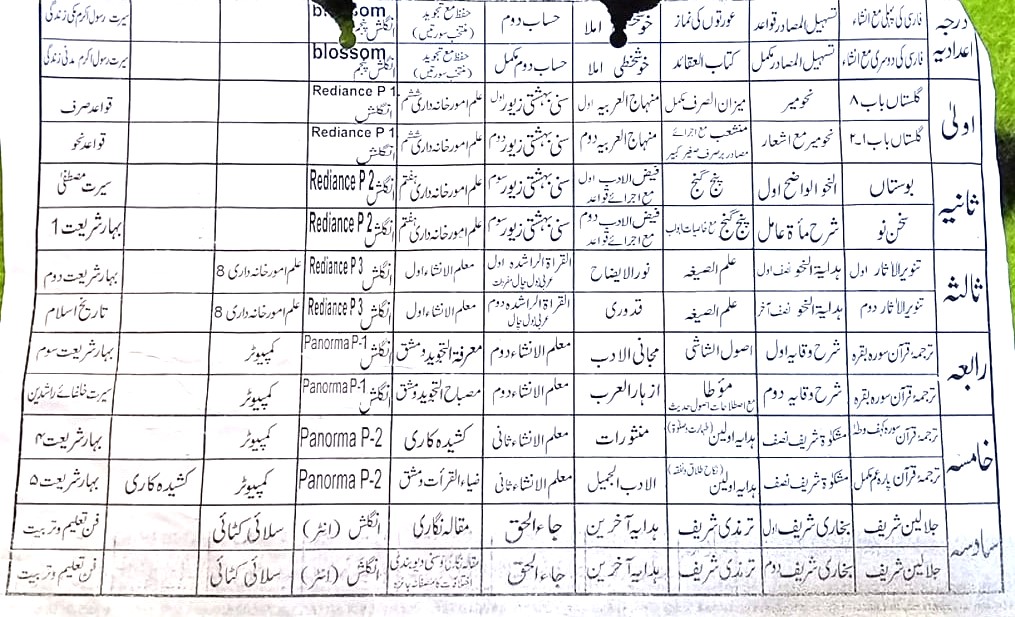 درجہ اعدادیہ
فارسی کی پہلی مع انشاء | تسہیل المصادر قواعد | عورتوں کی نماز | خوشخطی املا | حساب دوم | حفظ مع تجوید (منتخب سورتیں) | blossom انگلش پنجم | سیرت رسول اکرم مکی زندگی
فارسی کی دوسری مع انشاء | تسہیل المصادر مکمل | کتاب العقائد | خوشخطی املا | حساب دوم مکمل | حفظ مع تجوید (منتخب سورتیں) | blossom انگلش پنجم | سیرت رسول اکرم مدنی زندگی
اولیٰ
گلستاں باب ۸ | نحومیر | میزان الصرف مکمل | منہاج العربیہ اول | سنی بہشتی زیور اول | علم امور خانہ داری ششم | Rediance P 1 انگلش | قواعد صرف
گلستاں باب ۱۔۲ | نحومیر مع اشعار | منشعب مع اجرائے مصادر بر صرف صغیر کبیر | منہاج العربیہ دوم | سنی بہشتی زیور دوم | علم امور خانہ داری ششم | Rediance P 1 انگلش | قواعد نحو
ثانیہ
بوستاں | النحو الواضح اول | پنج گنج | فیض الادب اول مع اجرائے قواعد | سنی بہشتی زیور سوم | علم امور خانہ داری ہفتم | Rediance P 2 انگلش | سیرت مصطفیٰ
سخن نو | شرح مأۃ عامل | پنج گنج مع خاصیات ابواب | فیض الادب دوم مع اجرائے قواعد | سنی بہشتی زیور سوم | علم امور خانہ داری ہفتم | Rediance P 2 انگلش | بہار شریعت 1
ثالثہ
تنویر الآثار اول | ہدایۃ النحو نصف اول | علم الصیغہ | نور الایضاح | القراۃ الراشدہ اول عربی بول چال مفردات | معلم الانشاء اول | Rediance P 3 انگلش | علم امور خانہ داری 8 | بہار شریعت دوم
تنویر الآثار دوم | ہدایۃ النحو نصف آخر | علم الصیغہ | قدوری | القراۃ الراشدہ دوم عربی بول چال | معلم الانشاء اول | Rediance P 3 انگلش | علم امور خانہ داری 8 | تاریخ اسلام
رابعہ
ترجمۂ قرآن سورہ بقرہ | شرح وقایہ اول | اصول الشاشی | مجانی الادب | معلم الانشاء دوم | معرفۃ التجوید و مشق | Panorma P-1 انگلش | کمپیوٹر | بہار شریعت سوم
ترجمۂ قرآن سورہ بقرہ | شرح وقایہ دوم | مؤطا مع اصطلاحات اصول حدیث | ازہار العرب | معلم الانشاء دوم | مصباح التجوید و مشق | Panorma P-1 انگلش | کمپیوٹر | سیرت خلفائے راشدین
خامسہ
ترجمۂ قرآن سورہ کہف و طٰہٰ | مشکوٰۃ شریف نصف | ہدایہ اولین (طہارت و صلوٰۃ) | منثورات | معلم الانشاء ثانی | کشیدہ کاری | Panorma P-2 | کمپیوٹر | بہار شریعت ۴
ترجمۂ قرآن پارہ عم مکمل | مشکوٰۃ شریف نصف | ہدایہ اولین (نکاح طلاق و نفقہ) | الادب الجمیل | معلم الانشاء ثانی | ضیاء القرأت و مشق | Panorma P-2 | کمپیوٹر | کشیدہ کاری | بہار شریعت ۵
سادسہ
جلالین شریف | بخاری شریف اول | ترمذی شریف | ہدایہ آخرین | جاء الحق | مقالہ نگاری | انگلش (انٹر) | سلائی کٹائی | فن تعلیم و تربیت
جلالین شریف | بخاری شریف دوم | ترمذی شریف | ہدایہ آخرین | جاء الحق | مقالہ نگاری و سنی و دیوبندی | انگلش (انٹر) | سلائی کٹائی | فن تعلیم و تربیت